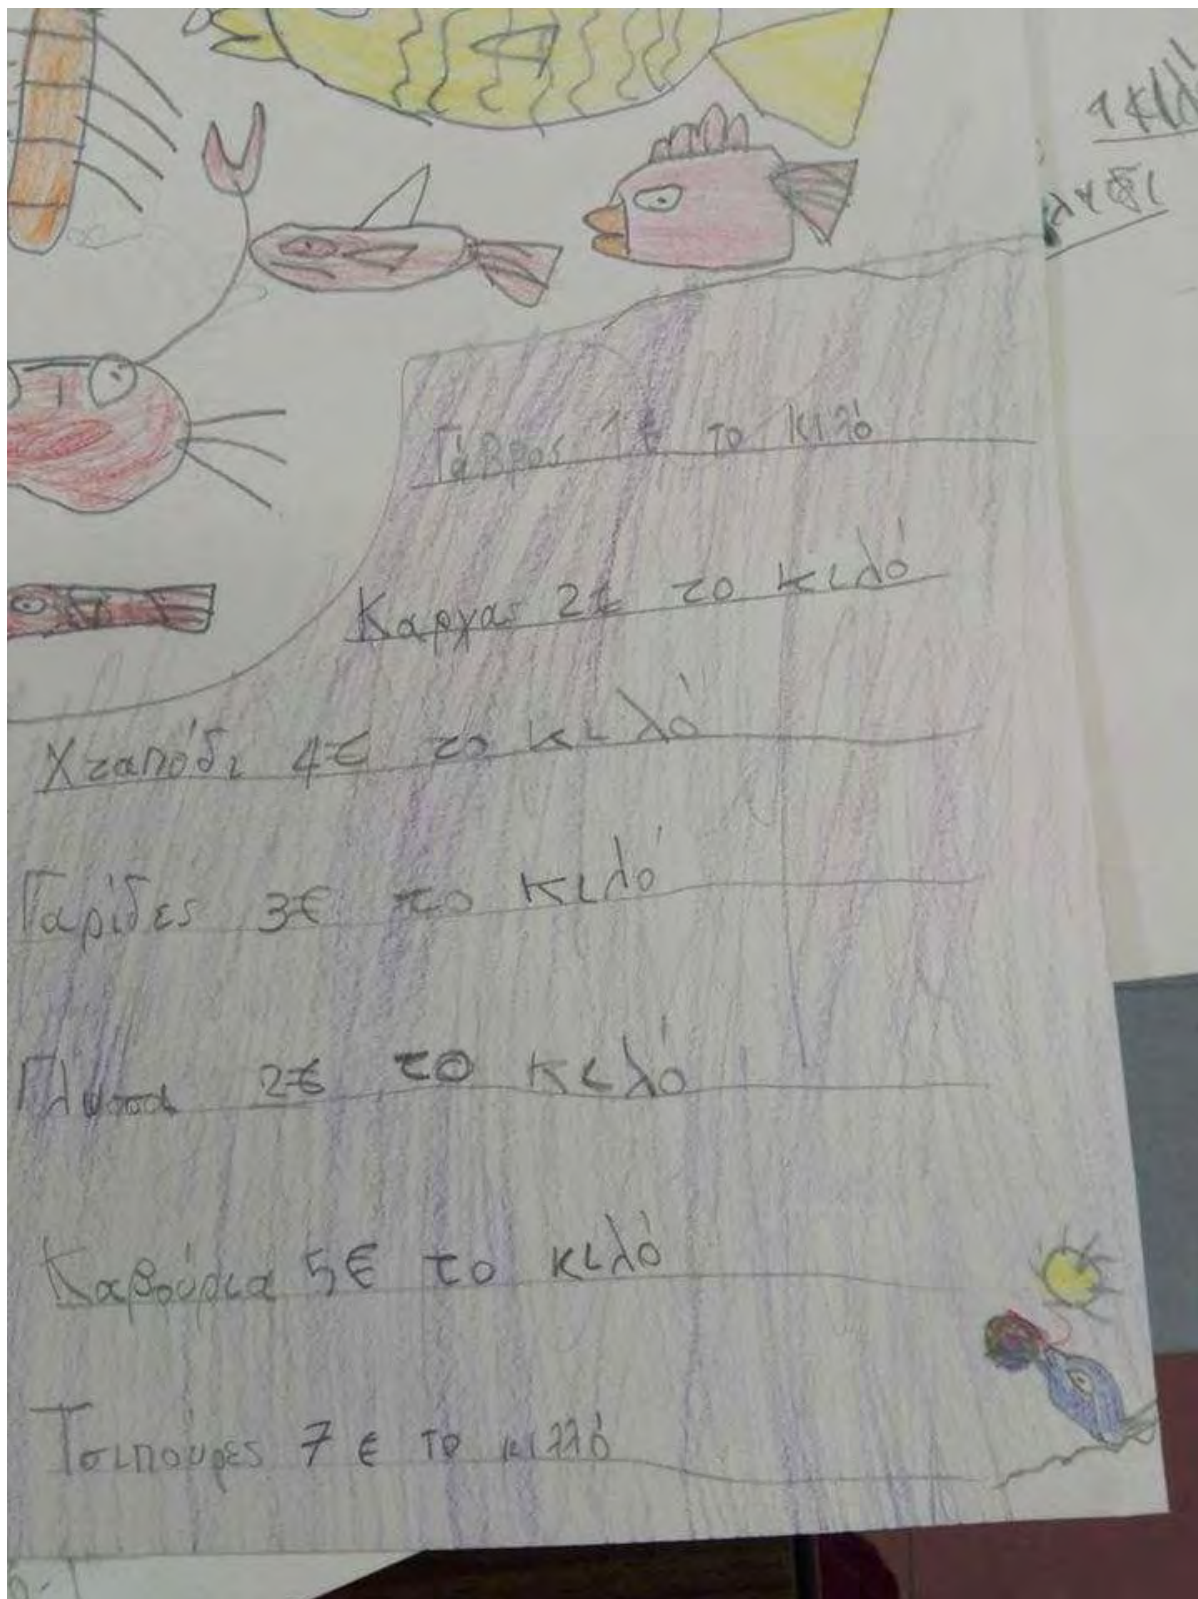 1 κιλ
Γάβρος 1€ το κιλό
Καργας 2€ το κιλό
Χταπόδι 4€ το κιλό
Γαρίδες 3€ το κιλό
Γλωσσα 2€ το κιλό
Καβούρια 5€ το κιλό
Τσιπούρες 7€ το κιλλό